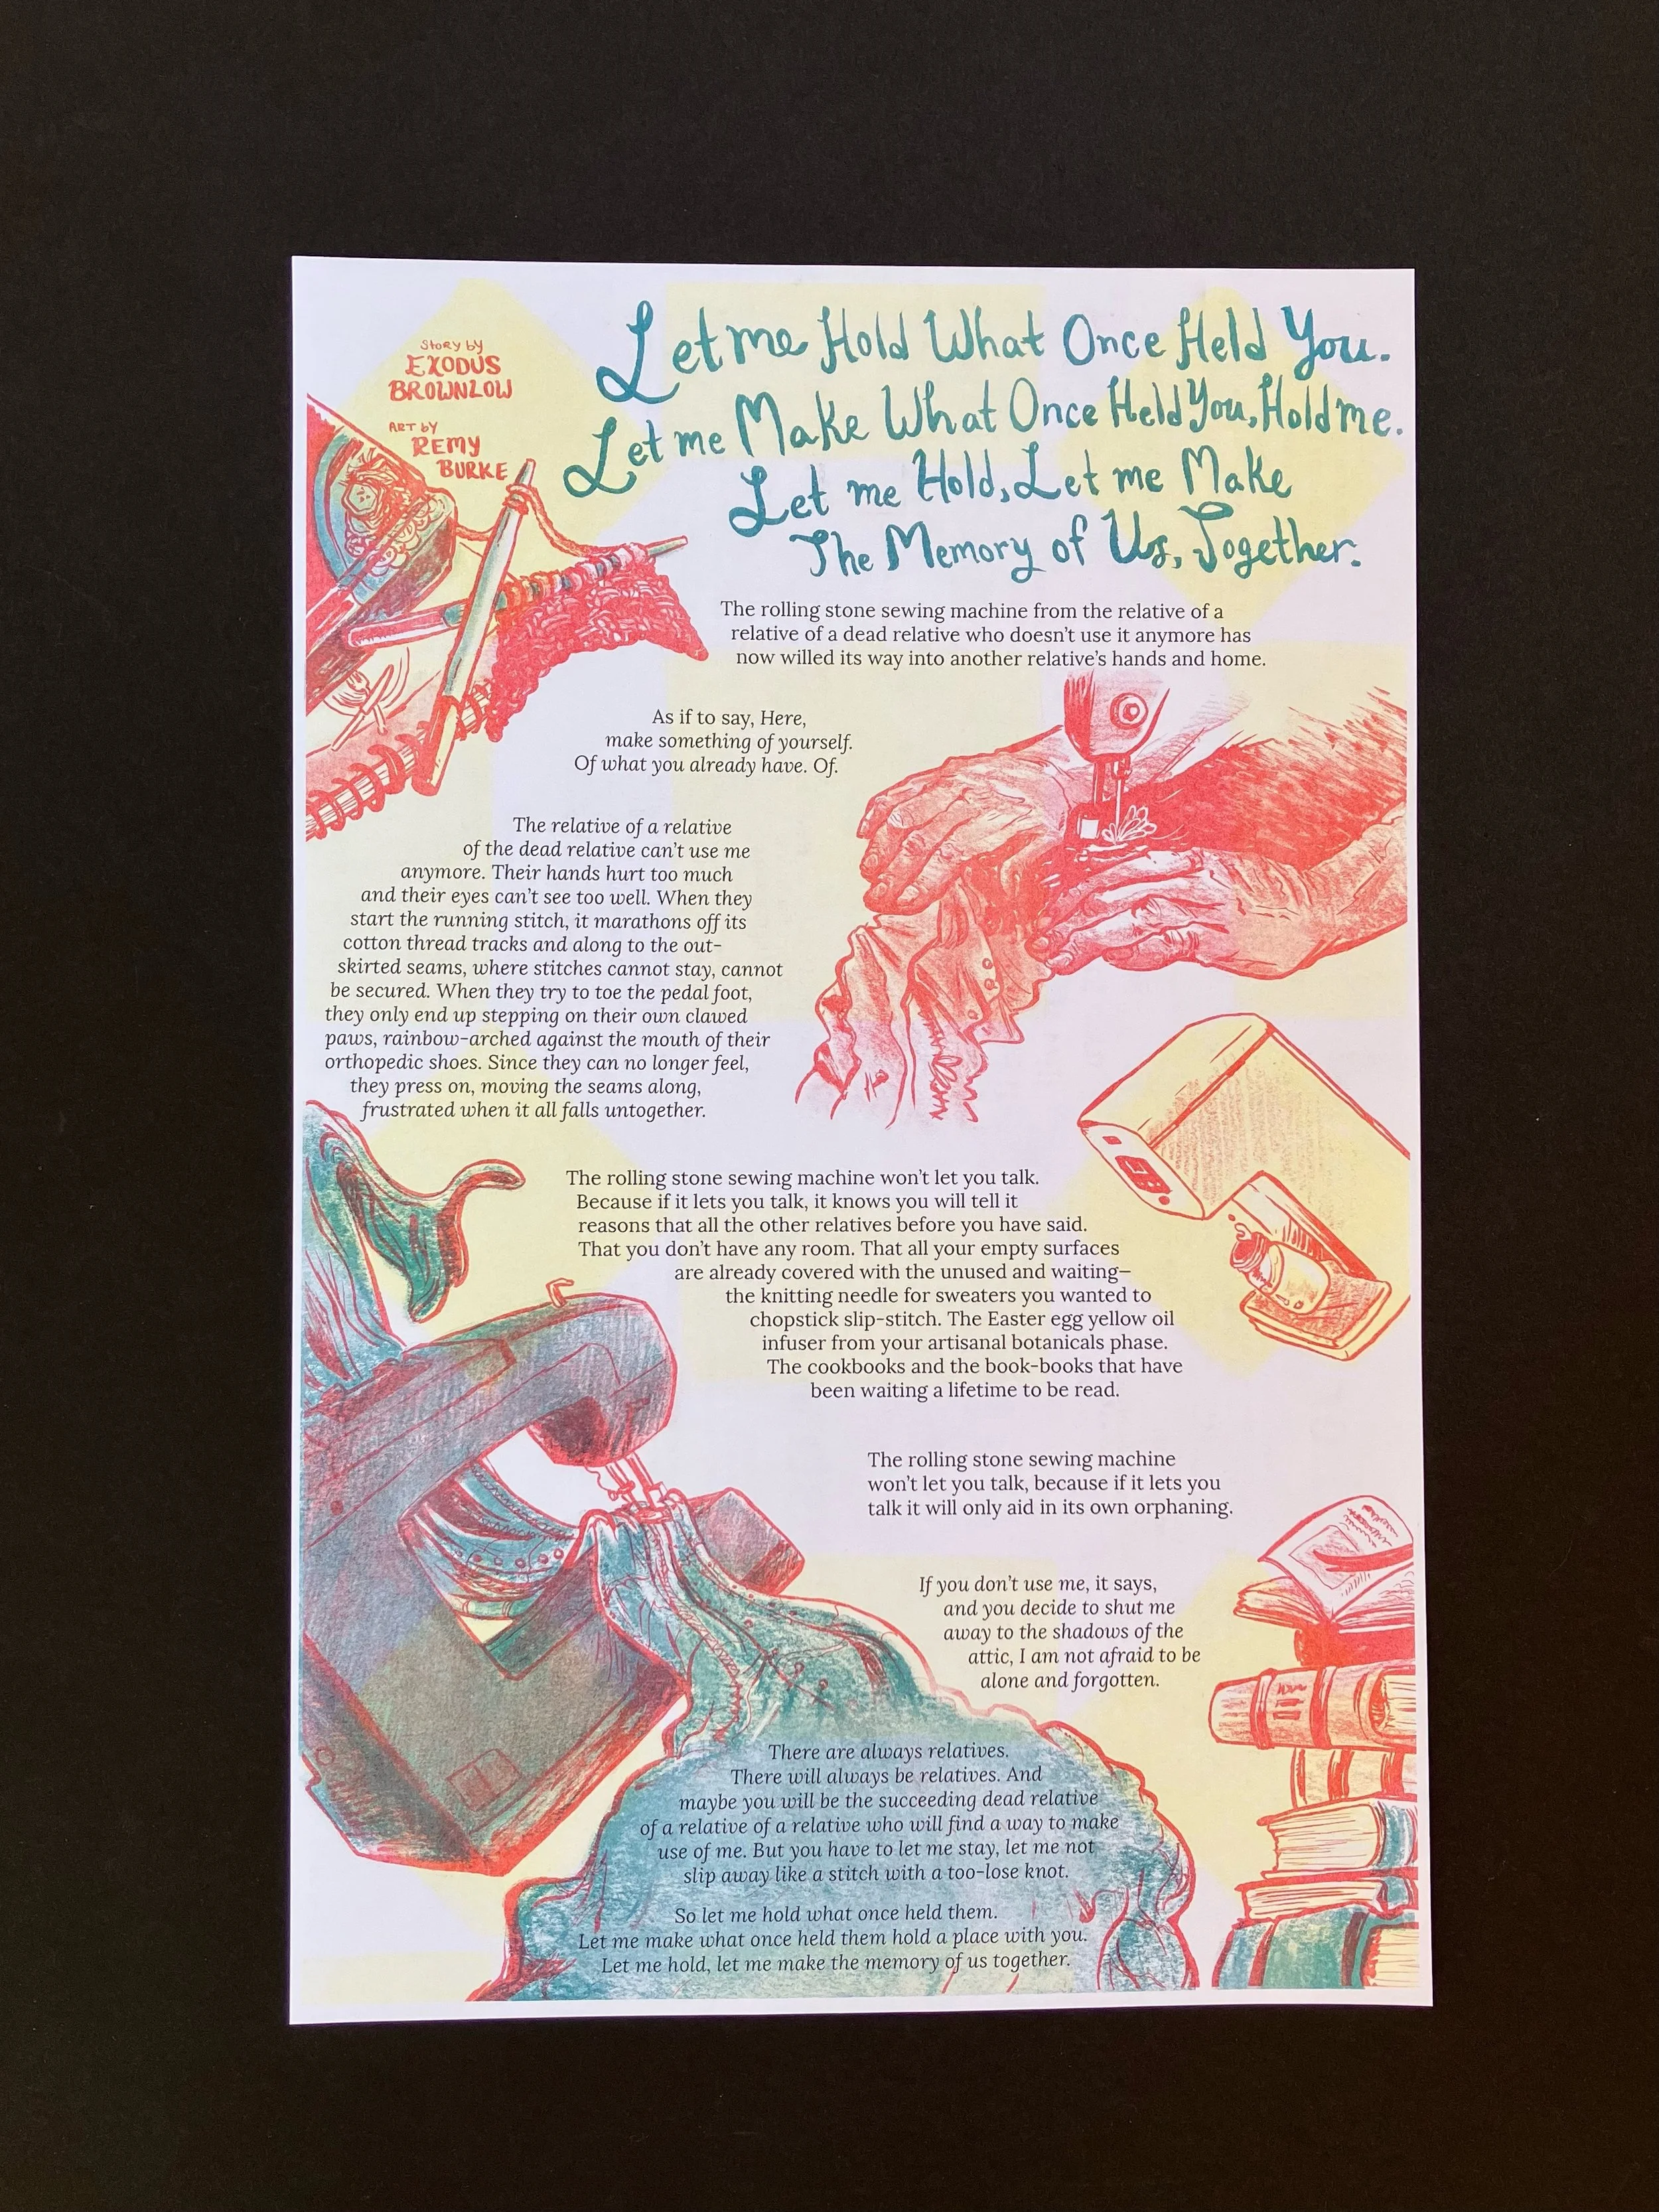 Story by
EXODUS
BROWNLOW
ART by
REMY
BURKE
Let me Hold What Once Held You.
Let me Make What Once Held You, Hold me.
Let me Hold, Let me Make
The Memory of Us, Together.
The rolling stone sewing machine from the relative of a
relative of a dead relative who doesn't use it anymore has
now willed its way into another relative's hands and home.
As if to say, Here,
make something of yourself.
Of what you already have. Of.
The relative of a relative
of the dead relative can't use me
anymore. Their hands hurt too much
and their eyes can't see too well. When they
start the running stitch, it marathons off its
cotton thread tracks and along to the out-
skirted seams, where stitches cannot stay, cannot
be secured. When they try to toe the pedal foot,
they only end up stepping on their own clawed
paws, rainbow-arched against the mouth of their
orthopedic shoes. Since they can no longer feel,
they press on, moving the seams along,
frustrated when it all falls untogether.
The rolling stone sewing machine won't let you talk.
Because if it lets you talk, it knows you will tell it
reasons that all the other relatives before you have said.
That you don't have any room. That all your empty surfaces
are already covered with the unused and waiting—
the knitting needle for sweaters you wanted to
chopstick slip-stitch. The Easter egg yellow oil
infuser from your artisanal botanicals phase.
The cookbooks and the book-books that have
been waiting a lifetime to be read.
The rolling stone sewing machine
won't let you talk, because if it lets you
talk it will only aid in its own orphaning.
If you don't use me, it says,
and you decide to shut me
away to the shadows of the
attic, I am not afraid to be
alone and forgotten.
There are always relatives.
There will always be relatives. And
maybe you will be the succeeding dead relative
of a relative of a relative who will find a way to make
use of me. But you have to let me stay, let me not
slip away like a stitch with a too-lose knot.
So let me hold what once held them.
Let me make what once held them hold a place with you.
Let me hold, let me make the memory of us together.